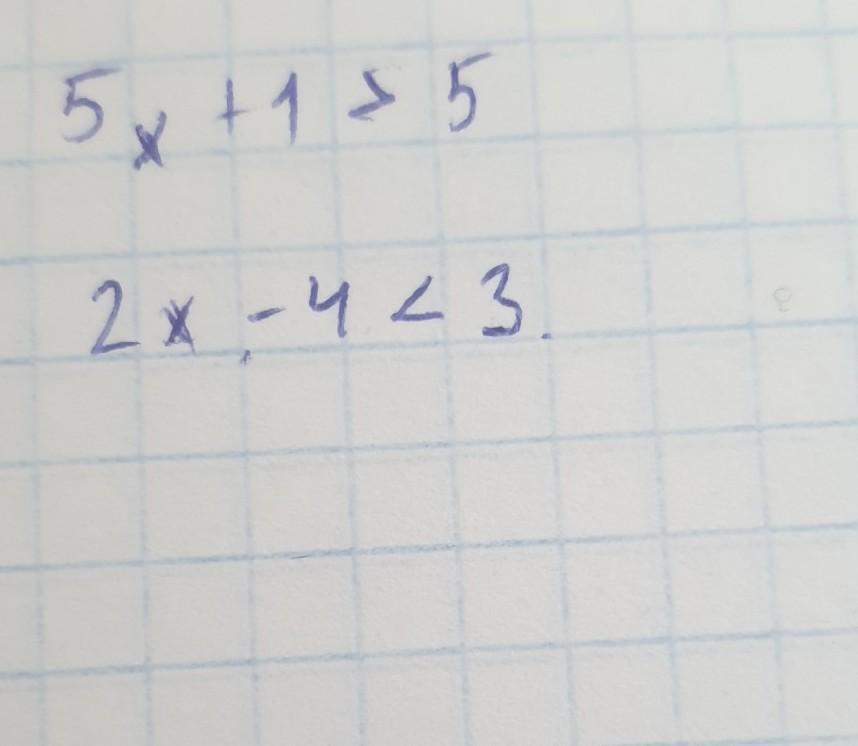 5x + 1 > 5
2x - 4 < 3.